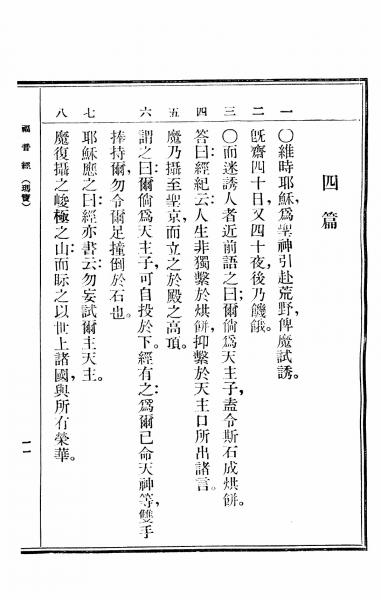 四篇
一 〇維時耶穌、爲聖神引赴荒野、俾魔試誘。
二 旣齋四十日、又四十夜、後乃饑餓。
三 〇而迷誘人者近前語之曰、爾倘爲天主子、盍令斯石成烘餅。
四 答曰、經紀云、人生非獨繫於烘餅、抑繫於天主口所出諸言。
五 魔乃攝至聖京、而立之於殿之高頂。
六 謂之曰、爾倘爲天主子、可自投於下。經有之、爲爾已命天神等、雙手
捧持爾、勿令爾足撞倒於石也。
七 耶穌應之曰、經亦書云、勿妄試爾主天主。
八 魔復攝之峻極之山、而眎之以世上諸國、與所有榮華。
福音經（瑪竇）
一一